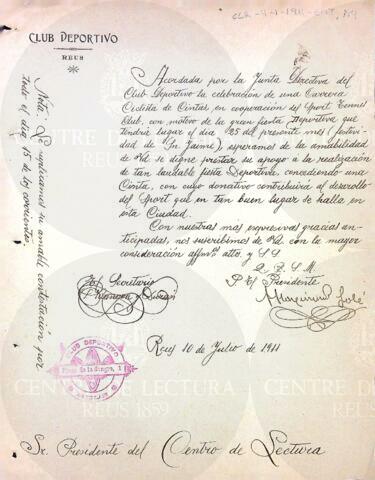 CLUB DEPORTIVO
REUS
Acordada por la Junta Directiva del
Club Deportivo la celebración de una Carrera
Ciclista de Cintas, en cooperación del Sport Tennis
Club, con motivo de la gran fiesta Deportiva que
tendrá lugar el día 25 del presente mes (festivi
dad de Sn Jaime), esperamos de la amabilidad
de Vd se digne prestar su apoyo a la realización
de tan laudable fiesta Deportiva concediendo una
Cinta, con cuyo donativo contribuirá al desarollo
del Sport que en tan buen lugar se halla en
esta Ciudad.
Con nuestras mas expresivas gracias an-
ticipadas, nos suscribimos de Vd. con la mayor
consideración affmos. attos. y SS
Q. B. S. M.
El Secretario
P. El Presidente
Reus 10 de Julio de 1911
CLUB DEPORTIVO
Plaza de la Sangre, 1
Sr. Presidente del Centro de Lectura
Nota: Se suplicamos su amable contestación por
todo el día 15 de los corrientes.
CENTRE DE LECTURA
REUS 1859